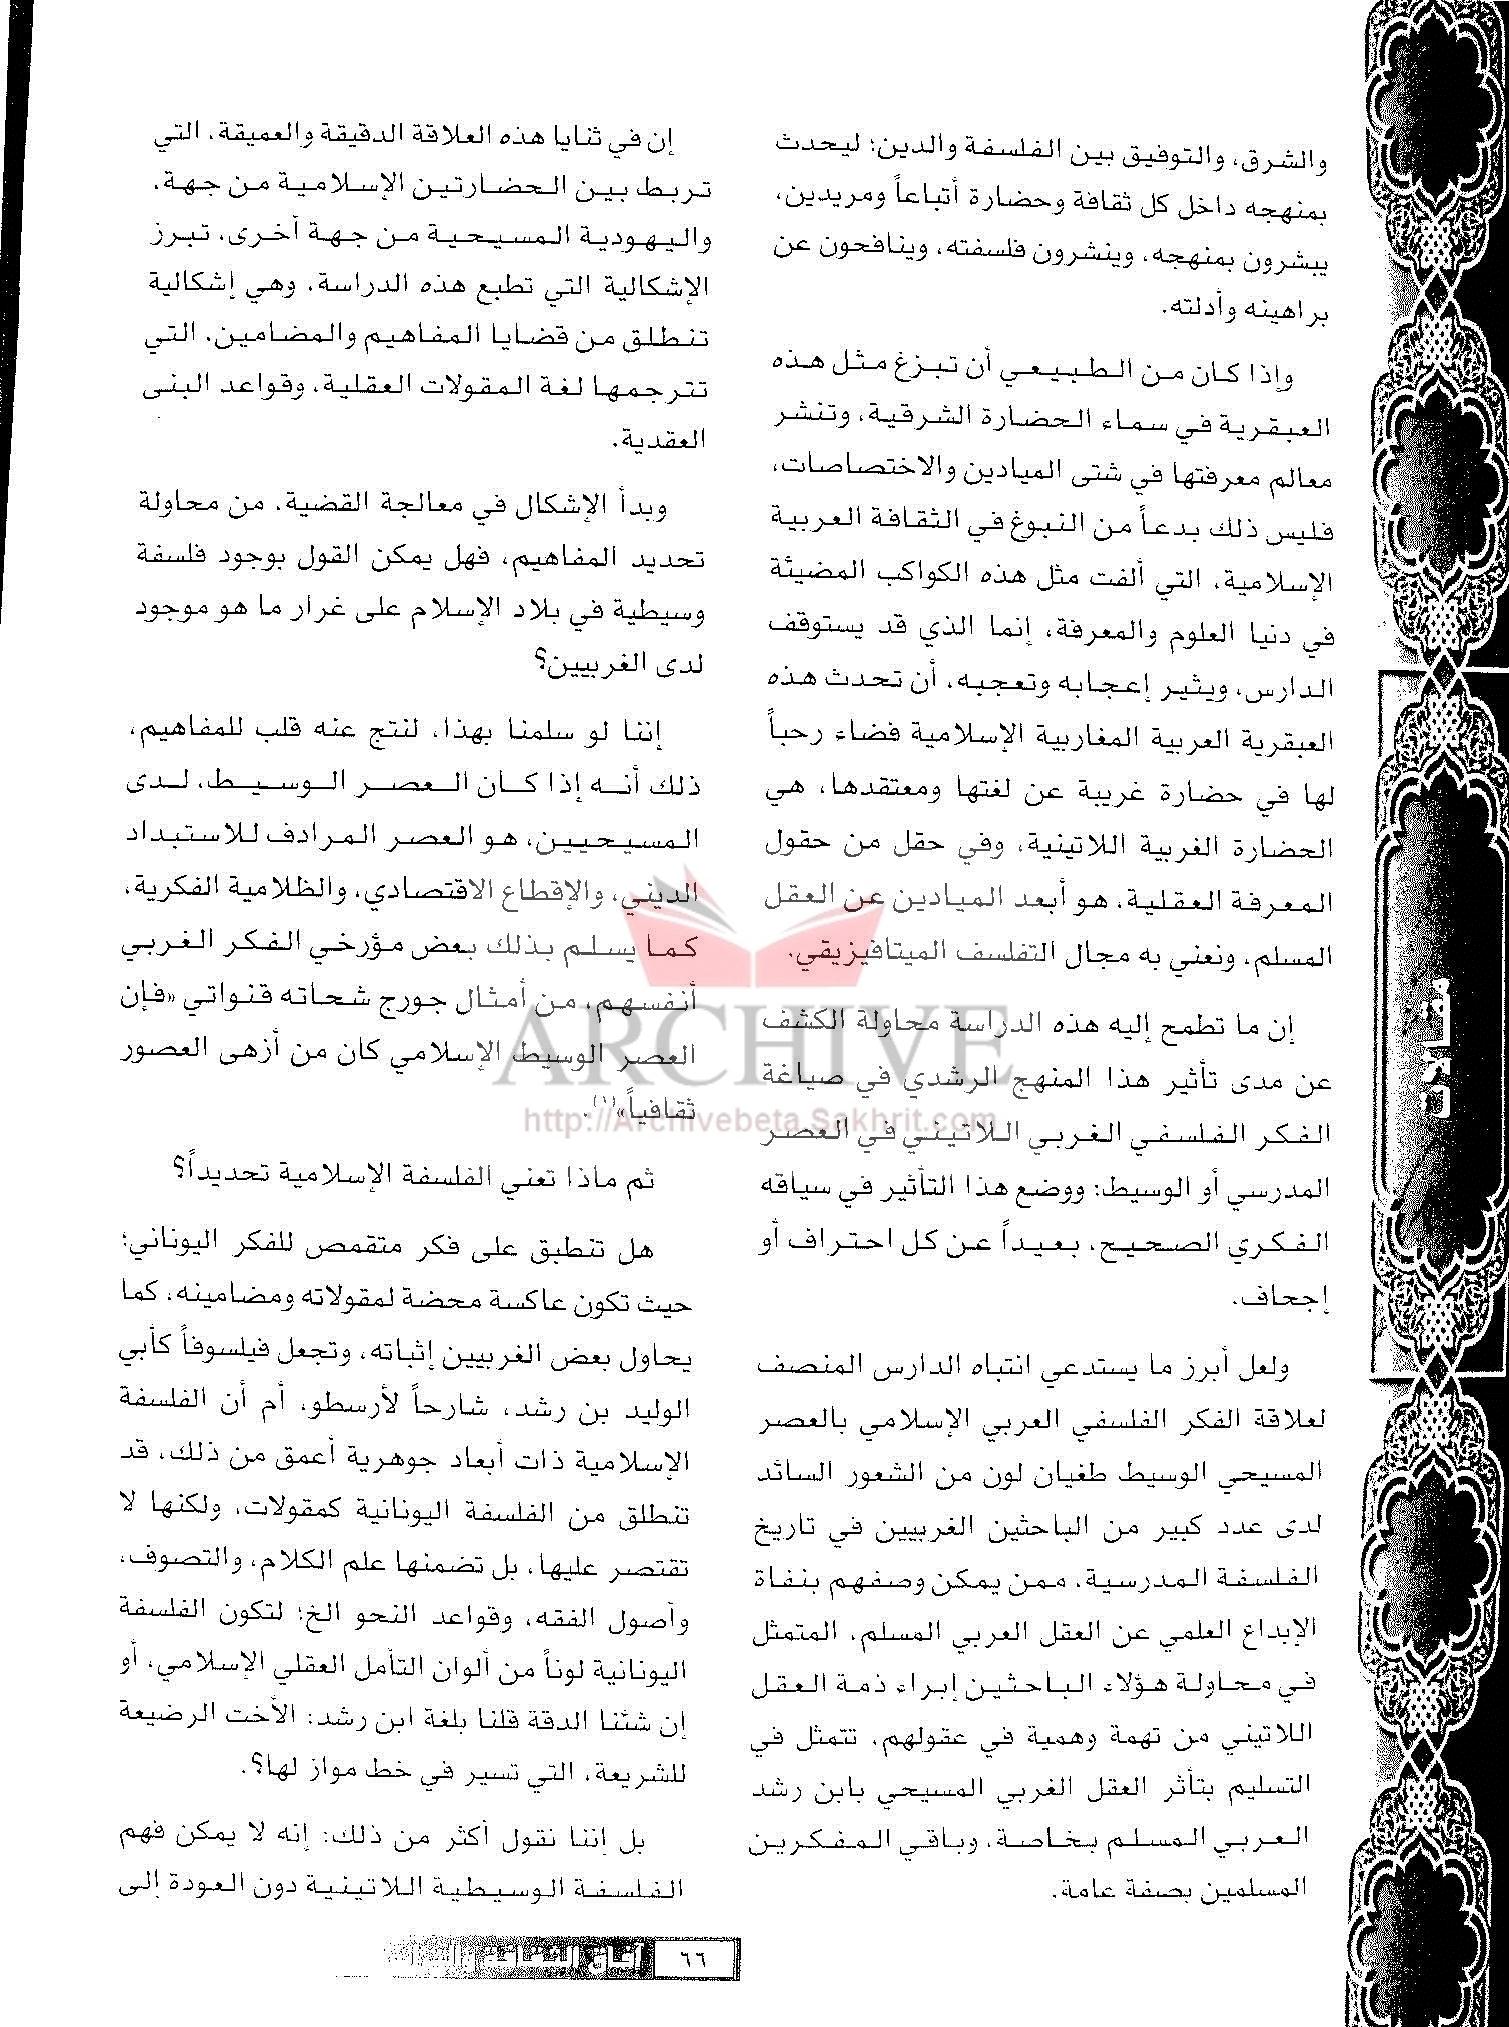 والشرق، والتوفيق بين الفلسفة والدين؛ ليحدث
بمنهجه داخل كل ثقافة وحضارة أتباعاً ومريدين،
يبشرون بمنهجه، وينشرون فلسفته، وينافحون عن
براهينه وأدلته.
وإذا كان من الطبيعي أن تبزغ مثل هذه
العبقرية في سماء الحضارة الشرقية، وتنشر
معالم معرفتها في شتى الميادين والاختصاصات،
فليس ذلك بدعاً من النبوغ في الثقافة العربية
الإسلامية، التي ألفت مثل هذه الكواكب المضيئة
في دنيا العلوم والمعرفة، إنما الذي قد يستوقف
الدارس، ويثير إعجابه وتعجبه، أن تحدث هذه
العبقرية العربية المغاربية الإسلامية فضاء رحباً
لها في حضارة غريبة عن لغتها ومعتقدها، هي
الحضارة الغربية اللاتينية، وفي حقل من حقول
المعرفة العقلية، هو أبعد الميادين عن العقل
المسلم، ونعني به مجال التفلسف الميتافيزيقي.
إن ما تطمح إليه هذه الدراسة محاولة الكشف
عن مدى تأثير هذا المنهج الرشدي في صياغة
الفكر الفلسفي الغربي اللاتيني في العصر
المدرسي أو الوسيط: ووضع هذا التأثير في سياقه
الفكري الصحيح، بعيداً عن كل احتراف أو
إجحاف.
ولعل أبرز ما يستدعي انتباه الدارس المنصف
لعلاقة الفكر الفلسفي العربي الإسلامي بالعصر
المسيحي الوسيط طغيان لون من الشعور السائد
لدى عدد كبير من الباحثين الغربيين في تاريخ
الفلسفة المدرسية، ممن يمكن وصفهم بنفاة
الإبداع العلمي عن العقل العربي المسلم، المتمثل
في محاولة هؤلاء الباحثين إبراء ذمة العقل
اللاتيني من تهمة وهمية في عقولهم، تتمثل في
التسليم بتأثر العقل الغربي المسيحي بابن رشد
العربي المسلم بخاصة، وباقي المفكرين
المسلمين بصفة عامة.
إن في ثنايا هذه العلاقة الدقيقة والعميقة، التي
تربط بين الحضارتين الإسلامية من جهة،
واليهودية المسيحية من جهة أخرى، تبرز
الإشكالية التي تطبع هذه الدراسة، وهي إشكالية
تنطلق من قضايا المفاهيم والمضامين، التي
تترجمها لغة المقولات العقلية، وقواعد البنى
العقدية.
وبدأ الإشكال في معالجة القضية، من محاولة
تحديد المفاهيم، فهل يمكن القول بوجود فلسفة
وسيطية في بلاد الإسلام على غرار ما هو موجود
لدى الغربيين؟
إننا لو سلمنا بهذا، لنتج عنه قلب للمفاهيم،
ذلك أنه إذا كان العصر الوسيط، لدى
المسيحيين، هو العصر المرادف للاستبداد
الديني، والإقطاع الاقتصادي، والظلامية الفكرية،
كما يسلم بذلك بعض مؤرخي الفكر الغربي
أنفسهم، من أمثال جورج شحاته قنواتي «فإن
العصر الوسيط الإسلامي كان من أزهى العصور
ثقافياً»(١).
ثم ماذا تعني الفلسفة الإسلامية تحديداً؟
هل تنطبق على فكر متقمص للفكر اليوناني؛
حيث تكون عاكسة محضة لمقولاته ومضامينه، كما
يحاول بعض الغربيين إثباته، وتجعل فيلسوفاً كأبي
الوليد بن رشد، شارحاً لأرسطو، أم أن الفلسفة
الإسلامية ذات أبعاد جوهرية أعمق من ذلك، قد
تنطلق من الفلسفة اليونانية كمقولات، ولكنها لا
تقتصر عليها، بل تضمنها علم الكلام، والتصوف،
وأصول الفقه، وقواعد النحو الخ؛ لتكون الفلسفة
اليونانية لوناً من ألوان التأمل العقلي الإسلامي، أو
إن شئنا الدقة قلنا بلغة ابن رشد: الأخت الرضيعة
للشريعة، التي تسير في خط مواز لها؟.
بل إننا نقول أكثر من ذلك: إنه لا يمكن فهم
الفلسفة الوسيطية اللاتينية دون العودة إلى
مقالات
ARCHIVE
http://Archivebeta.Sakhrit.com
٦٦
آفاق الثقافة